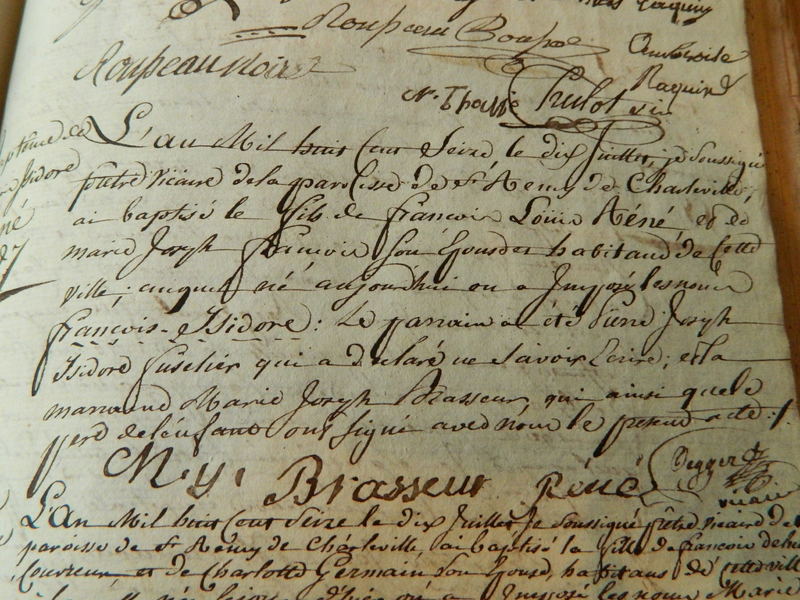 Roupsin Roupsé
Ambroise
Raquin
Roupeau Noir
N. Thorré Chulot
L'an Mil huit Cent Seize le dix Juillet, je Soussigné
prêtre vicaire de la paroisse de St Remy de Charleville,
ai baptisé le fils de françois Louis Réné, et de
marie Joseph françois Son Epouse habitans de Cette
ville; auquel né aujourd'hui on a Imposé les noms
françois-Isidore: Le parain a été Pierre Joseph
Isidore fuselier qui a déclaré ne Savoir Ecrire; et la
maraine Marie Joseph Brasseur, qui ainsi que le
pere de l'enfant ont Signé avec nous le présent acte ./.
M. y. Brasseur Réné
vicaire
L'An Mil huit Cent Seize le dix Juillet Je Soussigné prêtre vicaire de la
paroisse de St Rémy de Charleville, ai baptisé la fille de françois
Couvreur et de Charlotte Germain Son Epouse, habitans de Cette ville
on a Imposé les noms Marie